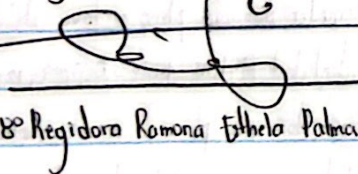 8º Regidora Ramona Ethela Palma